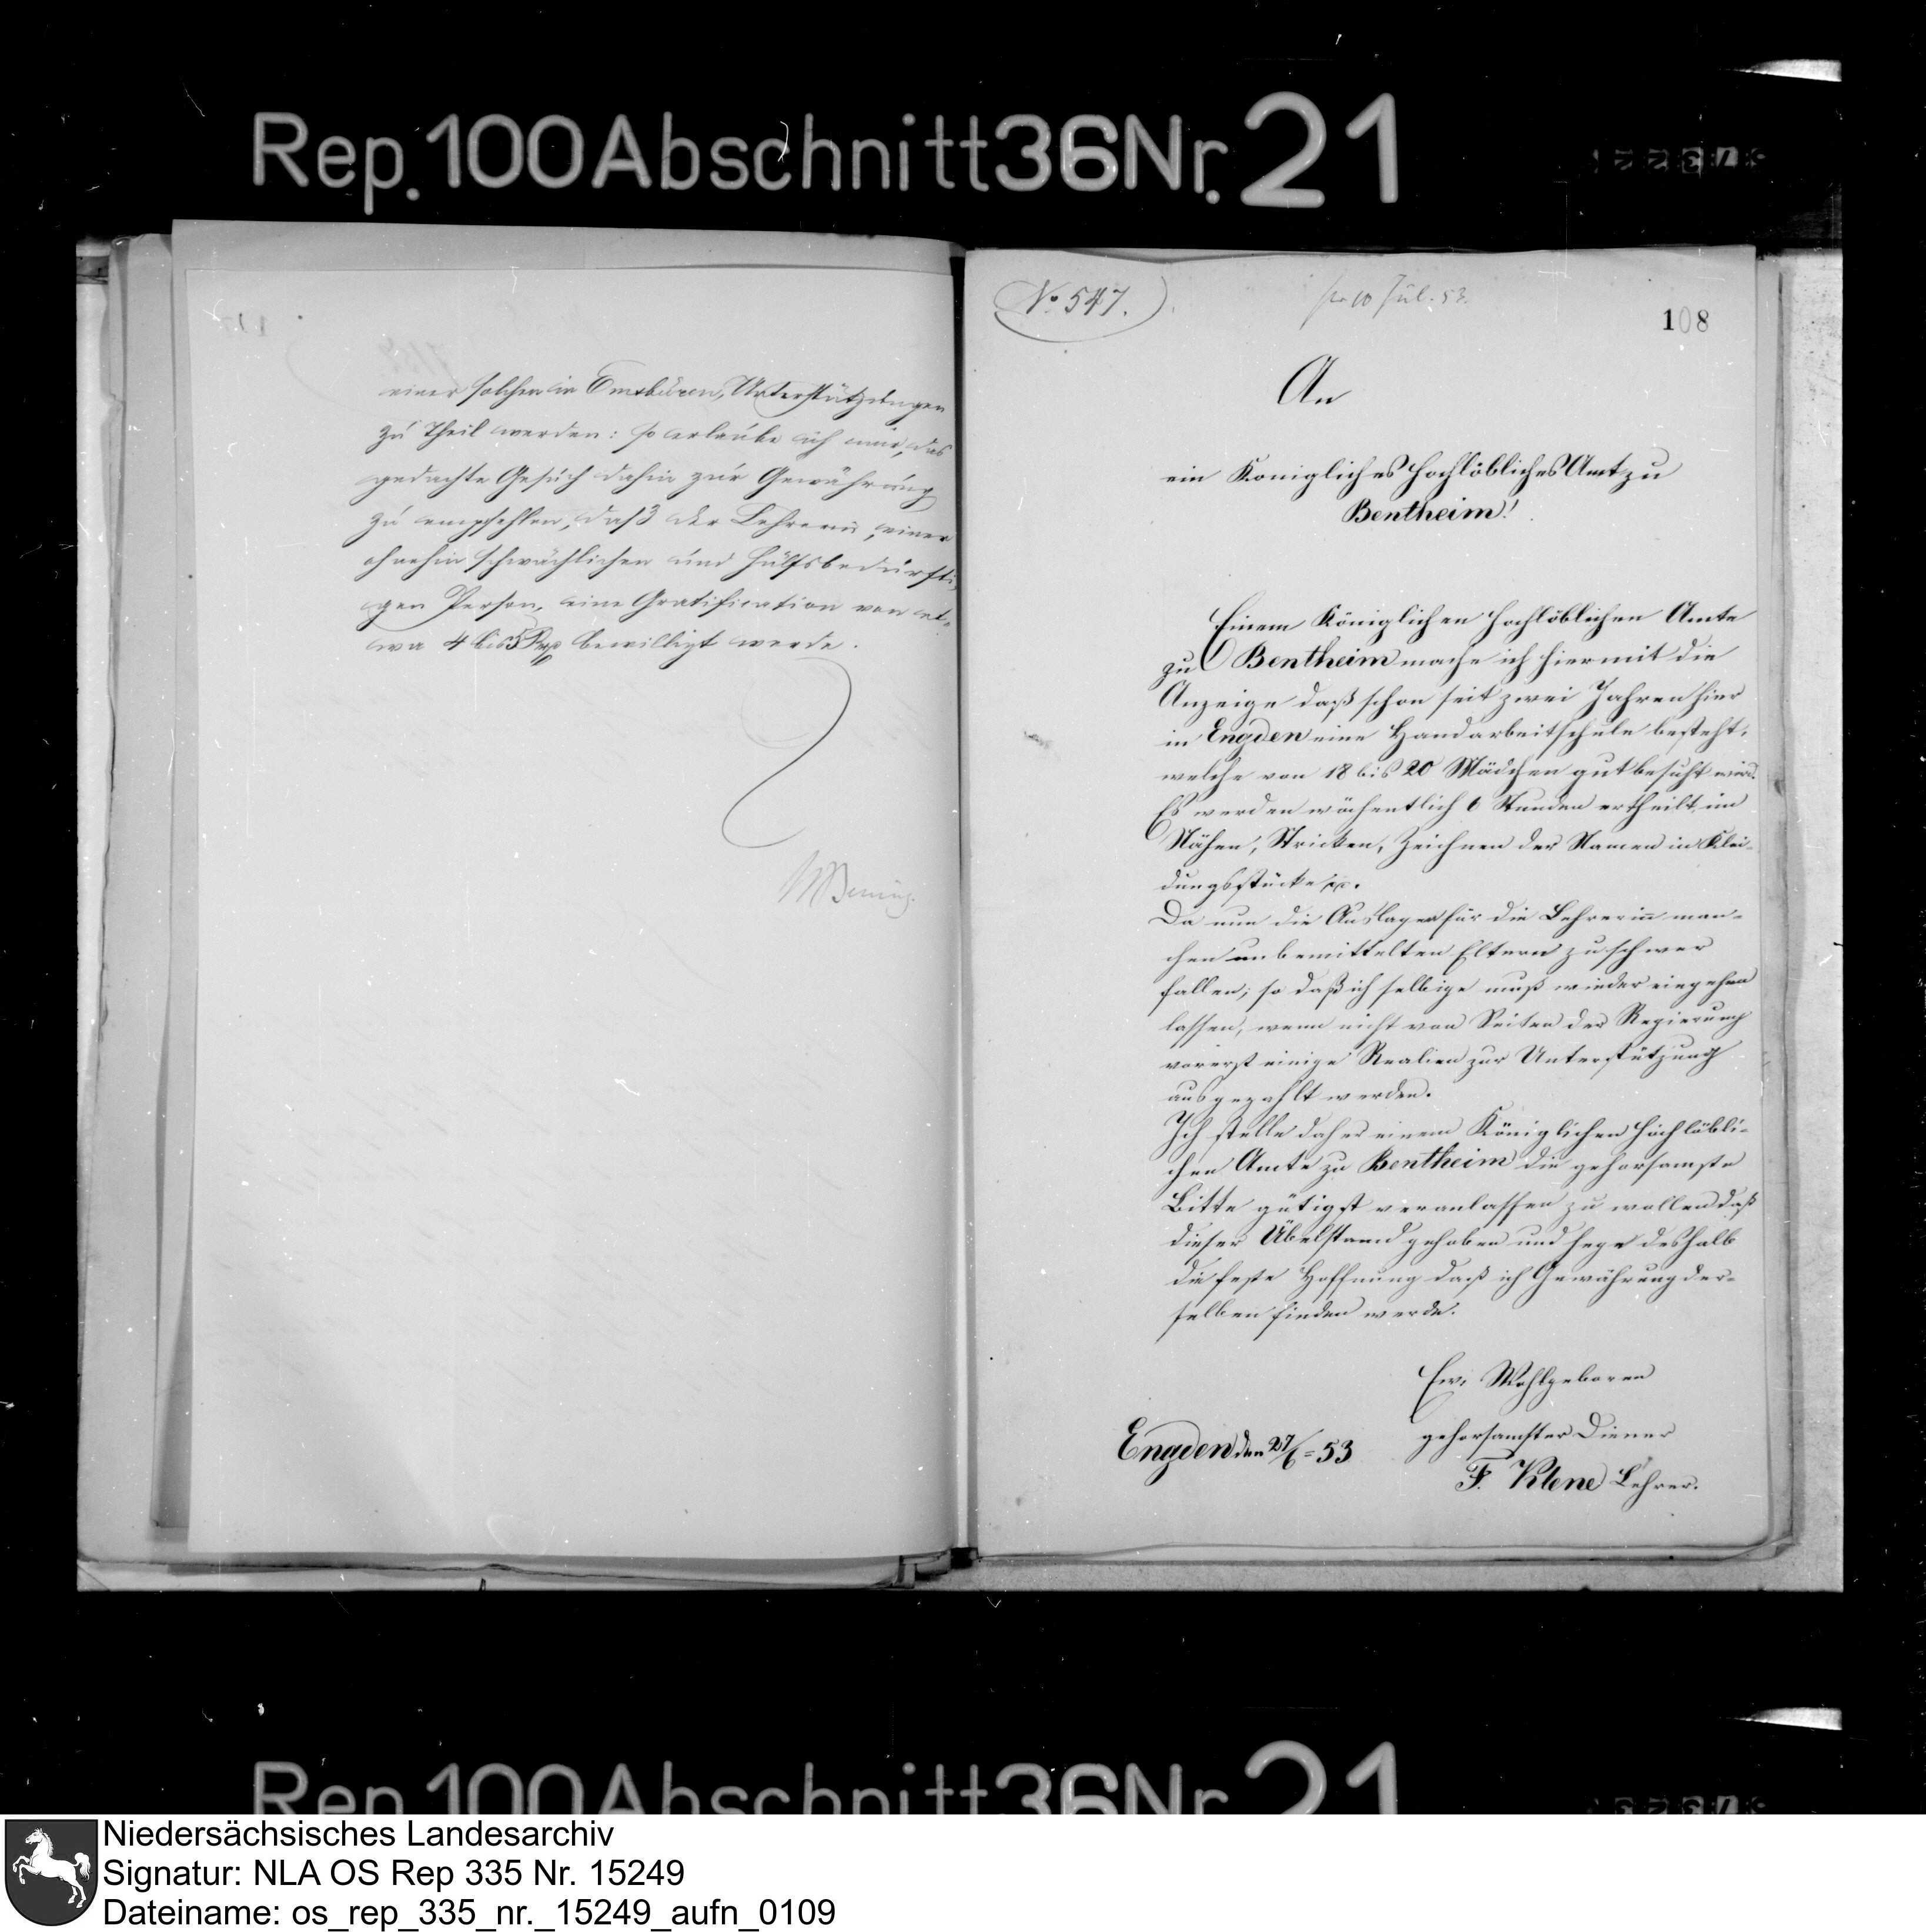 Rep. 100 Abschnitt 36 Nr. 21
einer solchen in Emsbüren, Unterstützungen
zu Theil werden: so erlaube ich mir, das
gedachte Gesuch dahin zur Gewährung
zu empfehlen, daß der Lehrerin, einer
ohnehin schwächlichen und hülfsbedürfti-
gen Person, eine Gratification von et-
wa 4 bis 5 Rthlr bewilligt werde.
No 547.
pr 10 Jul. 53.
108
An
ein Konigliches hochlöbliches Amt zu
Bentheim!
Einem Königlichen hochlöblichen Amte
zu Bentheim mache ich hiermit die
Anzeige daß schon seit zwei Jahren hier
in Engden eine Handarbeitschule besteht,
welche von 18 bis 20 Mädchen gut besucht wird.
Es werden wöchentlich 6 Stunden ertheilt im
Nähen, Stricken, Zeichnen der Namen in Klei-
dungsstücke pp.
Da nun die Auslagen für die Lehrerinn man-
chen unbemittelten Eltern zu schwer
fallen; so daß ich selbige muß wieder eingehen
lassen, wenn nicht von Seiten der Regierung
vorerst einige Realien zur Unterstützung
ausgezahlt werden.
Ich stelle daher einem Königlichen hochlöbli-
chen Amte zu Bentheim die gehorsamste
Bitte gütigst veranlassen zu wollen daß
dieser Übelstand gehoben und hege deshalb
die feste Hoffnung daß ich Gewährung der-
selben finden werde.
Ew. Wohlgeboren
gehorsamster Diener
Engden den 27/6 = 53
F. Klene Lehrer.
Rep. 100 Abschnitt 36 Nr. 21
Niedersächsisches Landesarchiv
Signatur: NLA OS Rep 335 Nr. 15249
Dateiname: os_rep_335_nr._15249_aufn_0109